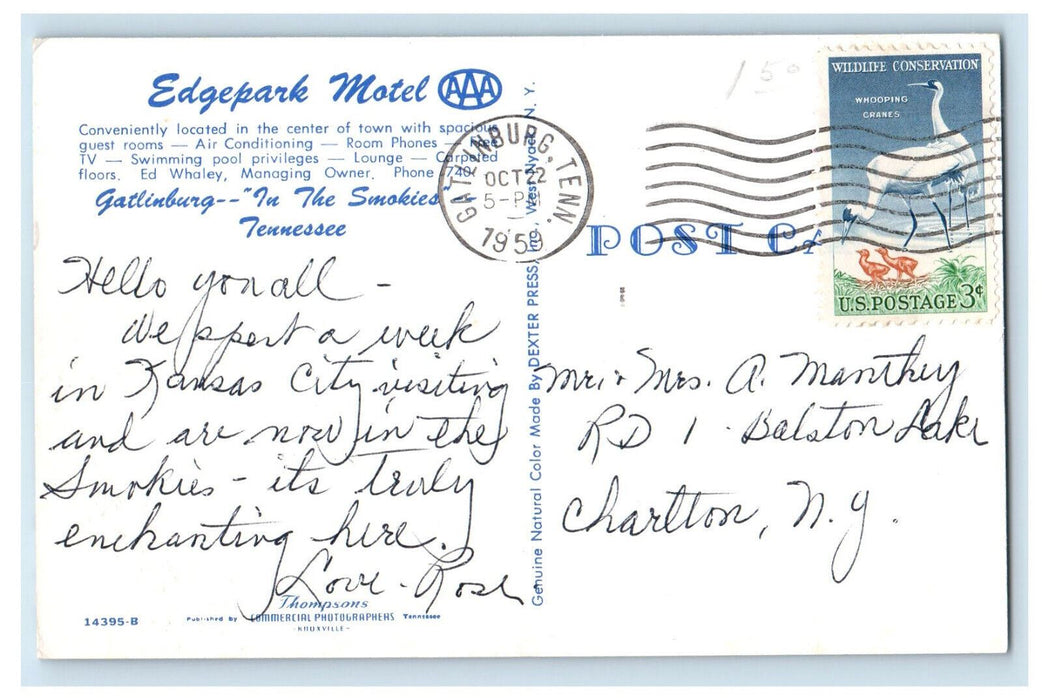 Edgepark Motel AAA
Conveniently located in the center of town with spacious
guest rooms — Air Conditioning — Room Phones — Free
TV — Swimming pool privileges — Lounge — Carpeted
floors. Ed Whaley, Managing Owner. Phone 740
Gatlinburg--"In The Smokies"
Tennessee
Hello you all –
We spent a week
in Kansas City visiting
and are now in the
Smokies – its truly
enchanting here.
Love – Rose
14395-B
Published by
Thompsons
COMMERCIAL PHOTOGRAPHERS
Tennessee
-KNOXVILLE-
Genuine Natural Color Made By DEXTER PRESS, Inc., West Nyack, N. Y.
GATLINBURG, TENN.
OCT 22
5-PM
195
150
POST CA
WILDLIFE CONSERVATION
WHOOPING
CRANES
U.S. POSTAGE 3¢
Mr. + Mrs. A. Manthey
RD 1 - Balston Lake
Charlton, N.Y.